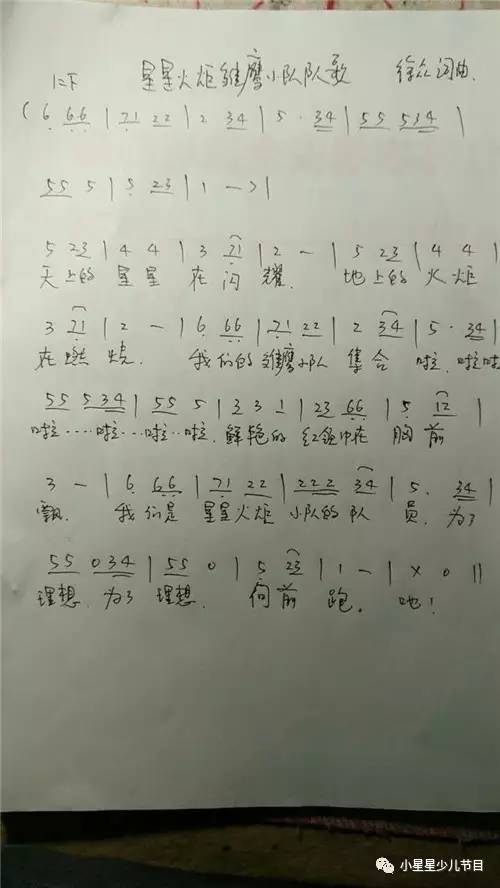 1=F 星星火炬雏鹰小队队歌 徐众词曲
( 6 66 | 71 22 | 2 34 | 5 · 34 | 55 534 |
55 5 | 5 23 | 1 - ) |
5 23 | 4 4 | 3 21 | 2 - | 5 23 | 4 4 |
天上的 星星 在闪 耀. 地上的 火炬
3 21 | 2 - | 6 66 | 71 22 | 2 34 | 5 · 34 |
在燃 烧. 我们的 雏鹰小队 集合 啦. 啦啦
55 534 | 55 5 | 3 3 1 | 23 66 | 5 12 |
啦····啦···啦··啦. 鲜艳的 红领巾在 胸前
3 - | 6 66 | 71 22 | 222 34 | 5. 34 |
飘. 我们是 星星火炬 小队的队 员. 为了
55 034 | 55 0 | 5 23 | 1 - | x 0 ||
理想. 为了 理想. 向前 跑. 吔!
小星星少儿节目